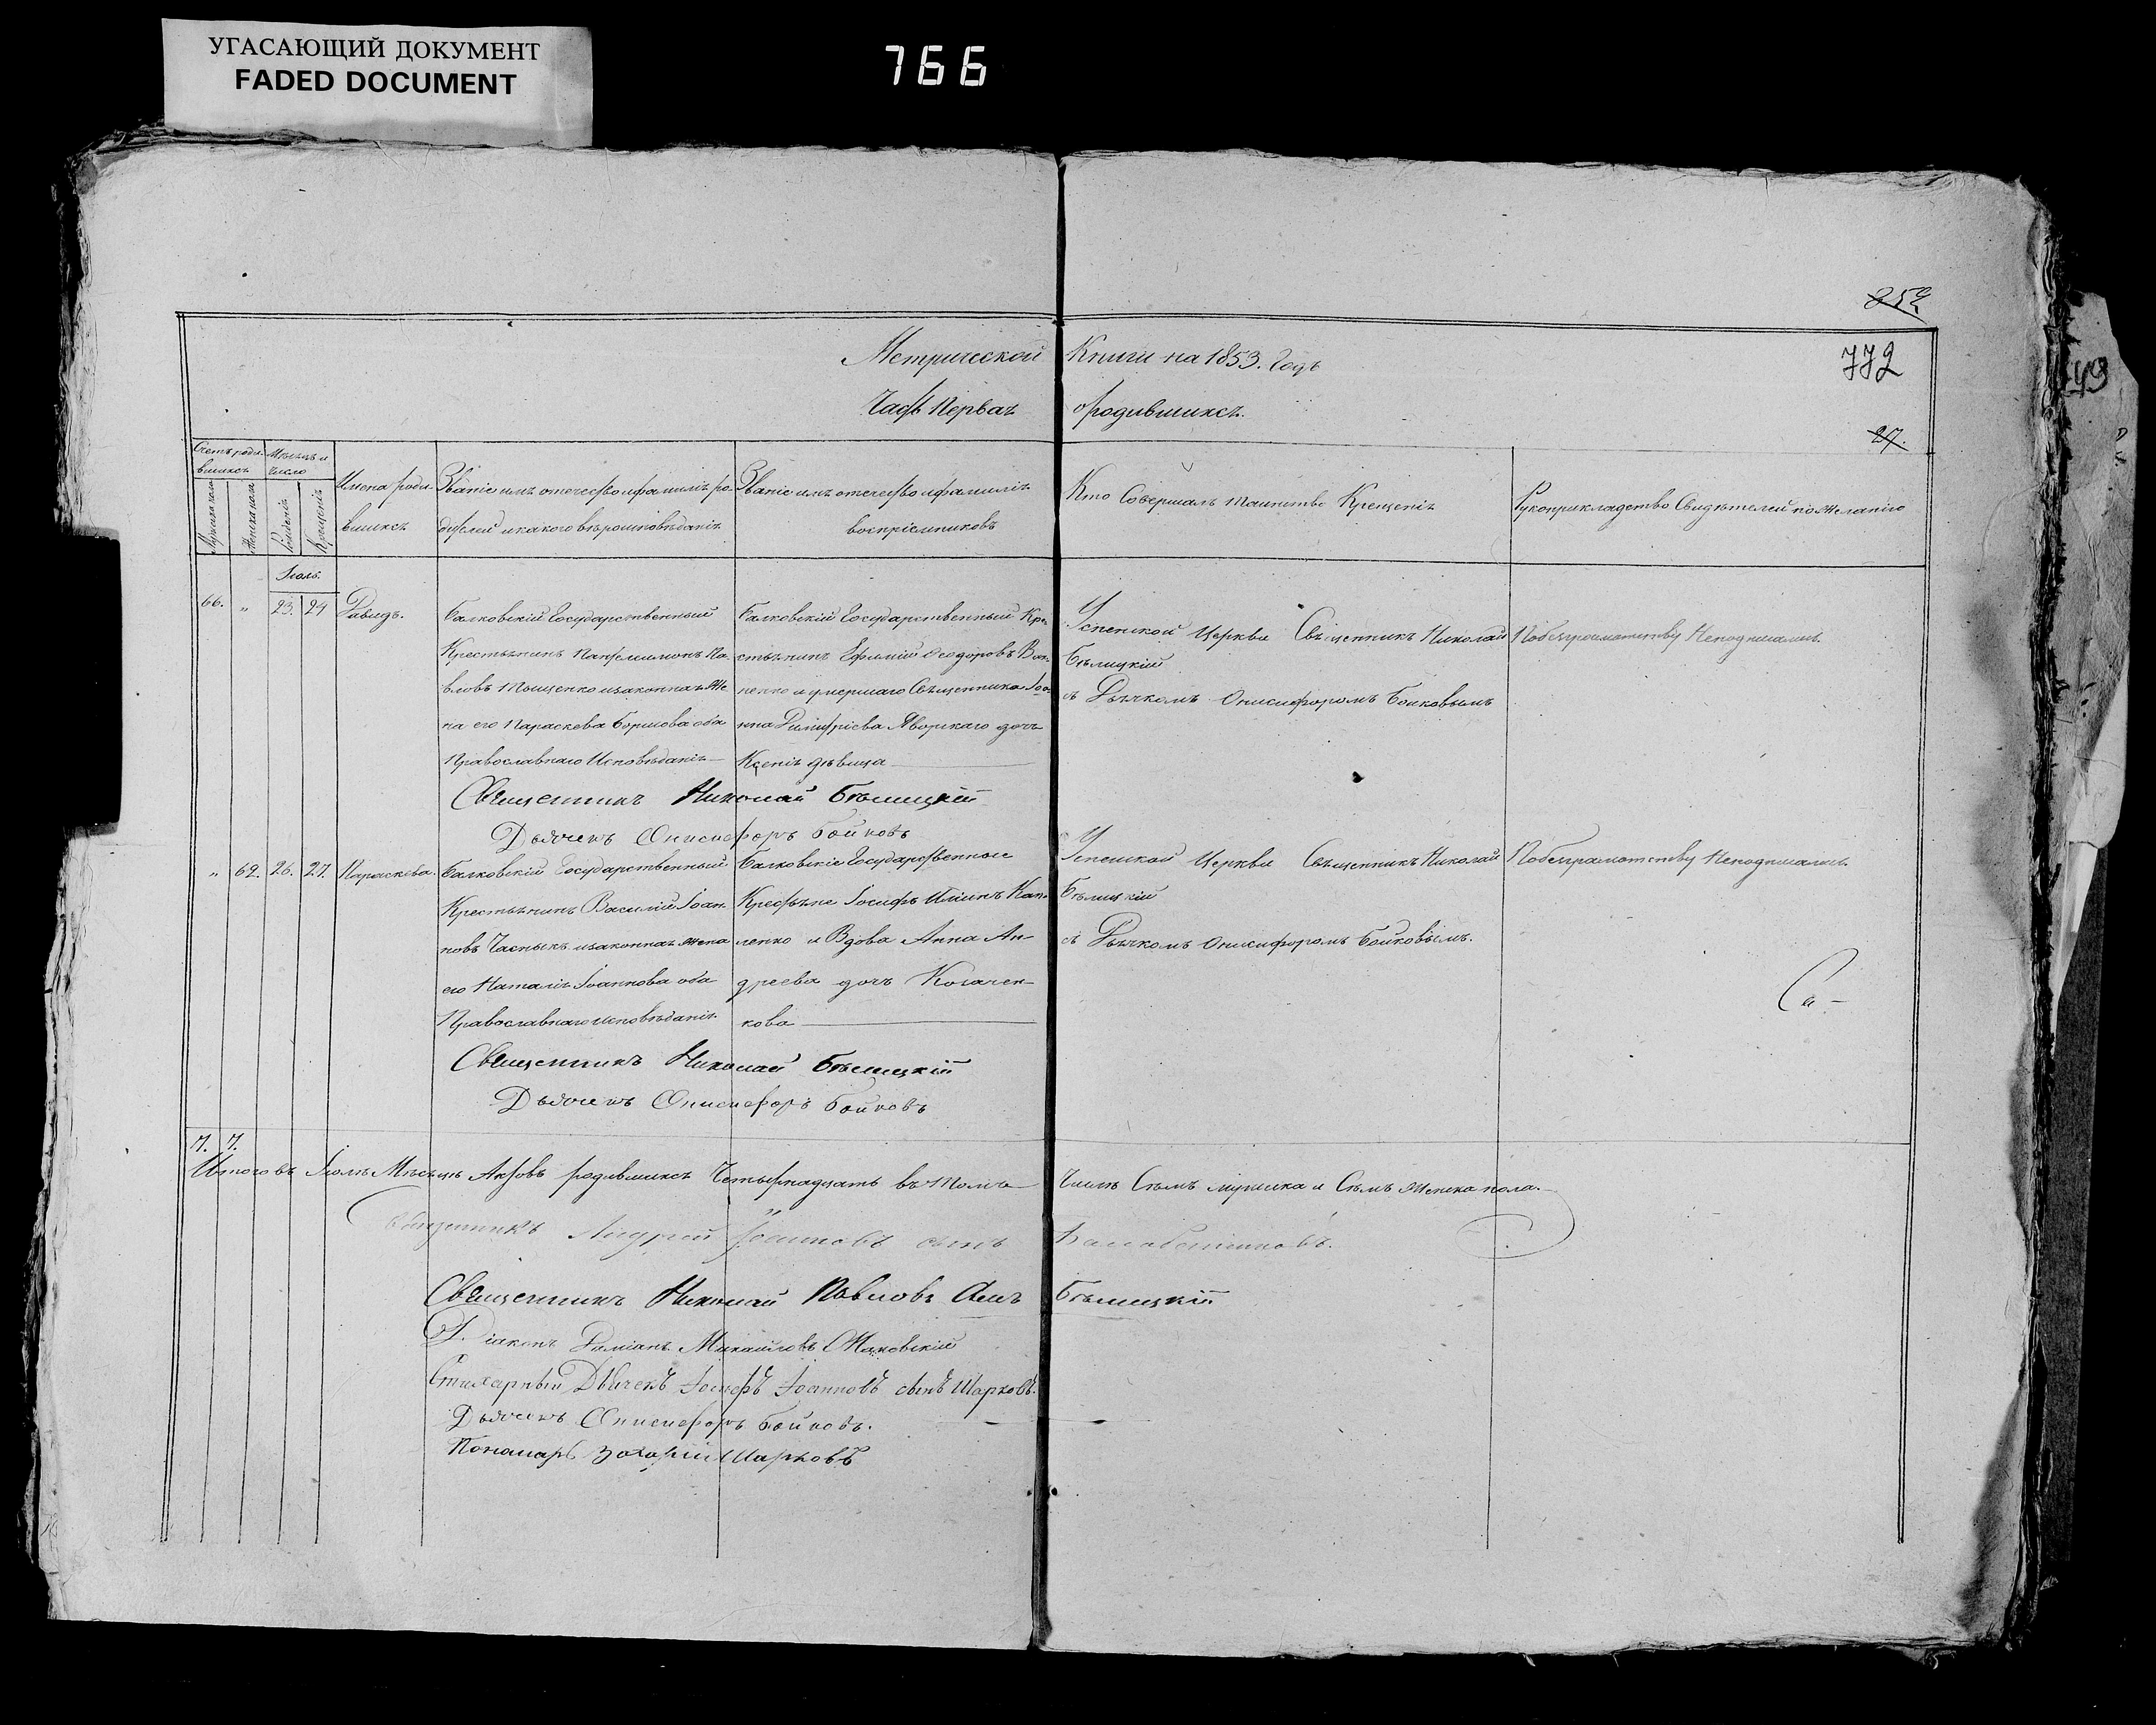 УГАСАЮЩИЙ ДОКУМЕНТ
FADED DOCUMENT
766
772
27.
Метрической Книги на 1853. Годъ
Часть Первая о родившихся.
Счетъ родившихся
Мѣсяцъ и число
Рожденія
Крещенія
Имена родившихся
Званіе имя отечество и фамилія родителей и какого вѣроисповѣданія
Званіе имя отечество и фамилія воспріемниковъ
Кто Совершалъ таинство Крещенія
Рукоприкладство Свидѣтелей по желанію
Іюль.
66. " 23. 24 Давидъ.
Балковскій Государственный
Крестьянинъ Пантелимонъ Па-
вловъ Тыщенко и законная же-
на его Параскева Борисова оба
Православнаго Исповѣданія
Балковскій Государственный Кре-
стьянинъ Ефимій Ѳеодоровъ
и умершаго Священника Іоа-
нна Димитріева Яворскаго дочь
Ксенія дѣвица
Успенской Церкви Священникъ Николай
Бѣлицкій
съ Дьячкомъ Онисифоромъ Бойковымъ
По безграмотству Неподписались
Священникъ Николай Бѣлицкій
Дьячекъ Онисифоръ Бойковъ
" 62. 26. 27. Параскева.
Балковскій Государственный
Крестьянинъ Василій Іоан-
новъ Часныкъ и законная жена
его Наталія Іоаннова оба
Православнаго исповѣданія
Балковскіе Государственные
Крестьяне Іосифъ Ильинъ Кап-
ленко и Вдова Анна Ан-
дреева дочь Косачен-
кова
Успенской Церкви Священникъ Николай
Бѣлицкій
съ Дьячкомъ Онисифоромъ Бойковымъ.
По безграмотству Неподписались
Священникъ Николай Бѣлицкій
Дьячекъ Онисифоръ Бойковъ
7. 7.
Итого въ Іюлѣ Мѣсяцѣ Актовъ родившихся Четырнадцать въ томъ Числѣ Семь мужска и Семь женска пола.
Священникъ Андрей Іоанновъ сынъ
Священникъ Николай Павловъ Сынъ Бѣлицкій
Діаконъ Даміанъ Михайловъ Маковскій
Стихарный Дьячекъ Іосифъ Іоанновъ сынъ Шарковъ.
Дьячекъ Онисифоръ Бойковъ.
Пономарь Захарій Шарковъ